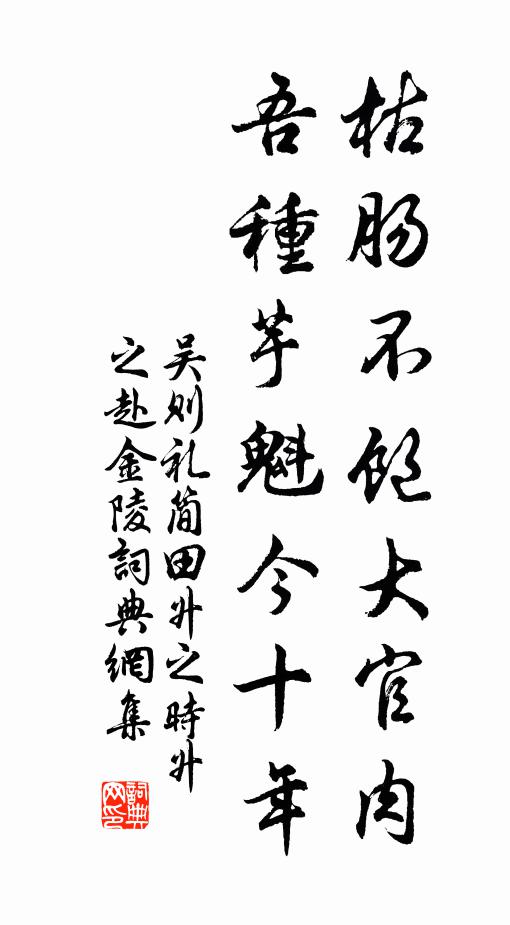 枯肠不飽大官肉
吾種芋魁今十年
吴则礼简田升之時升
之赴金陵詞典網集
詞典
网印